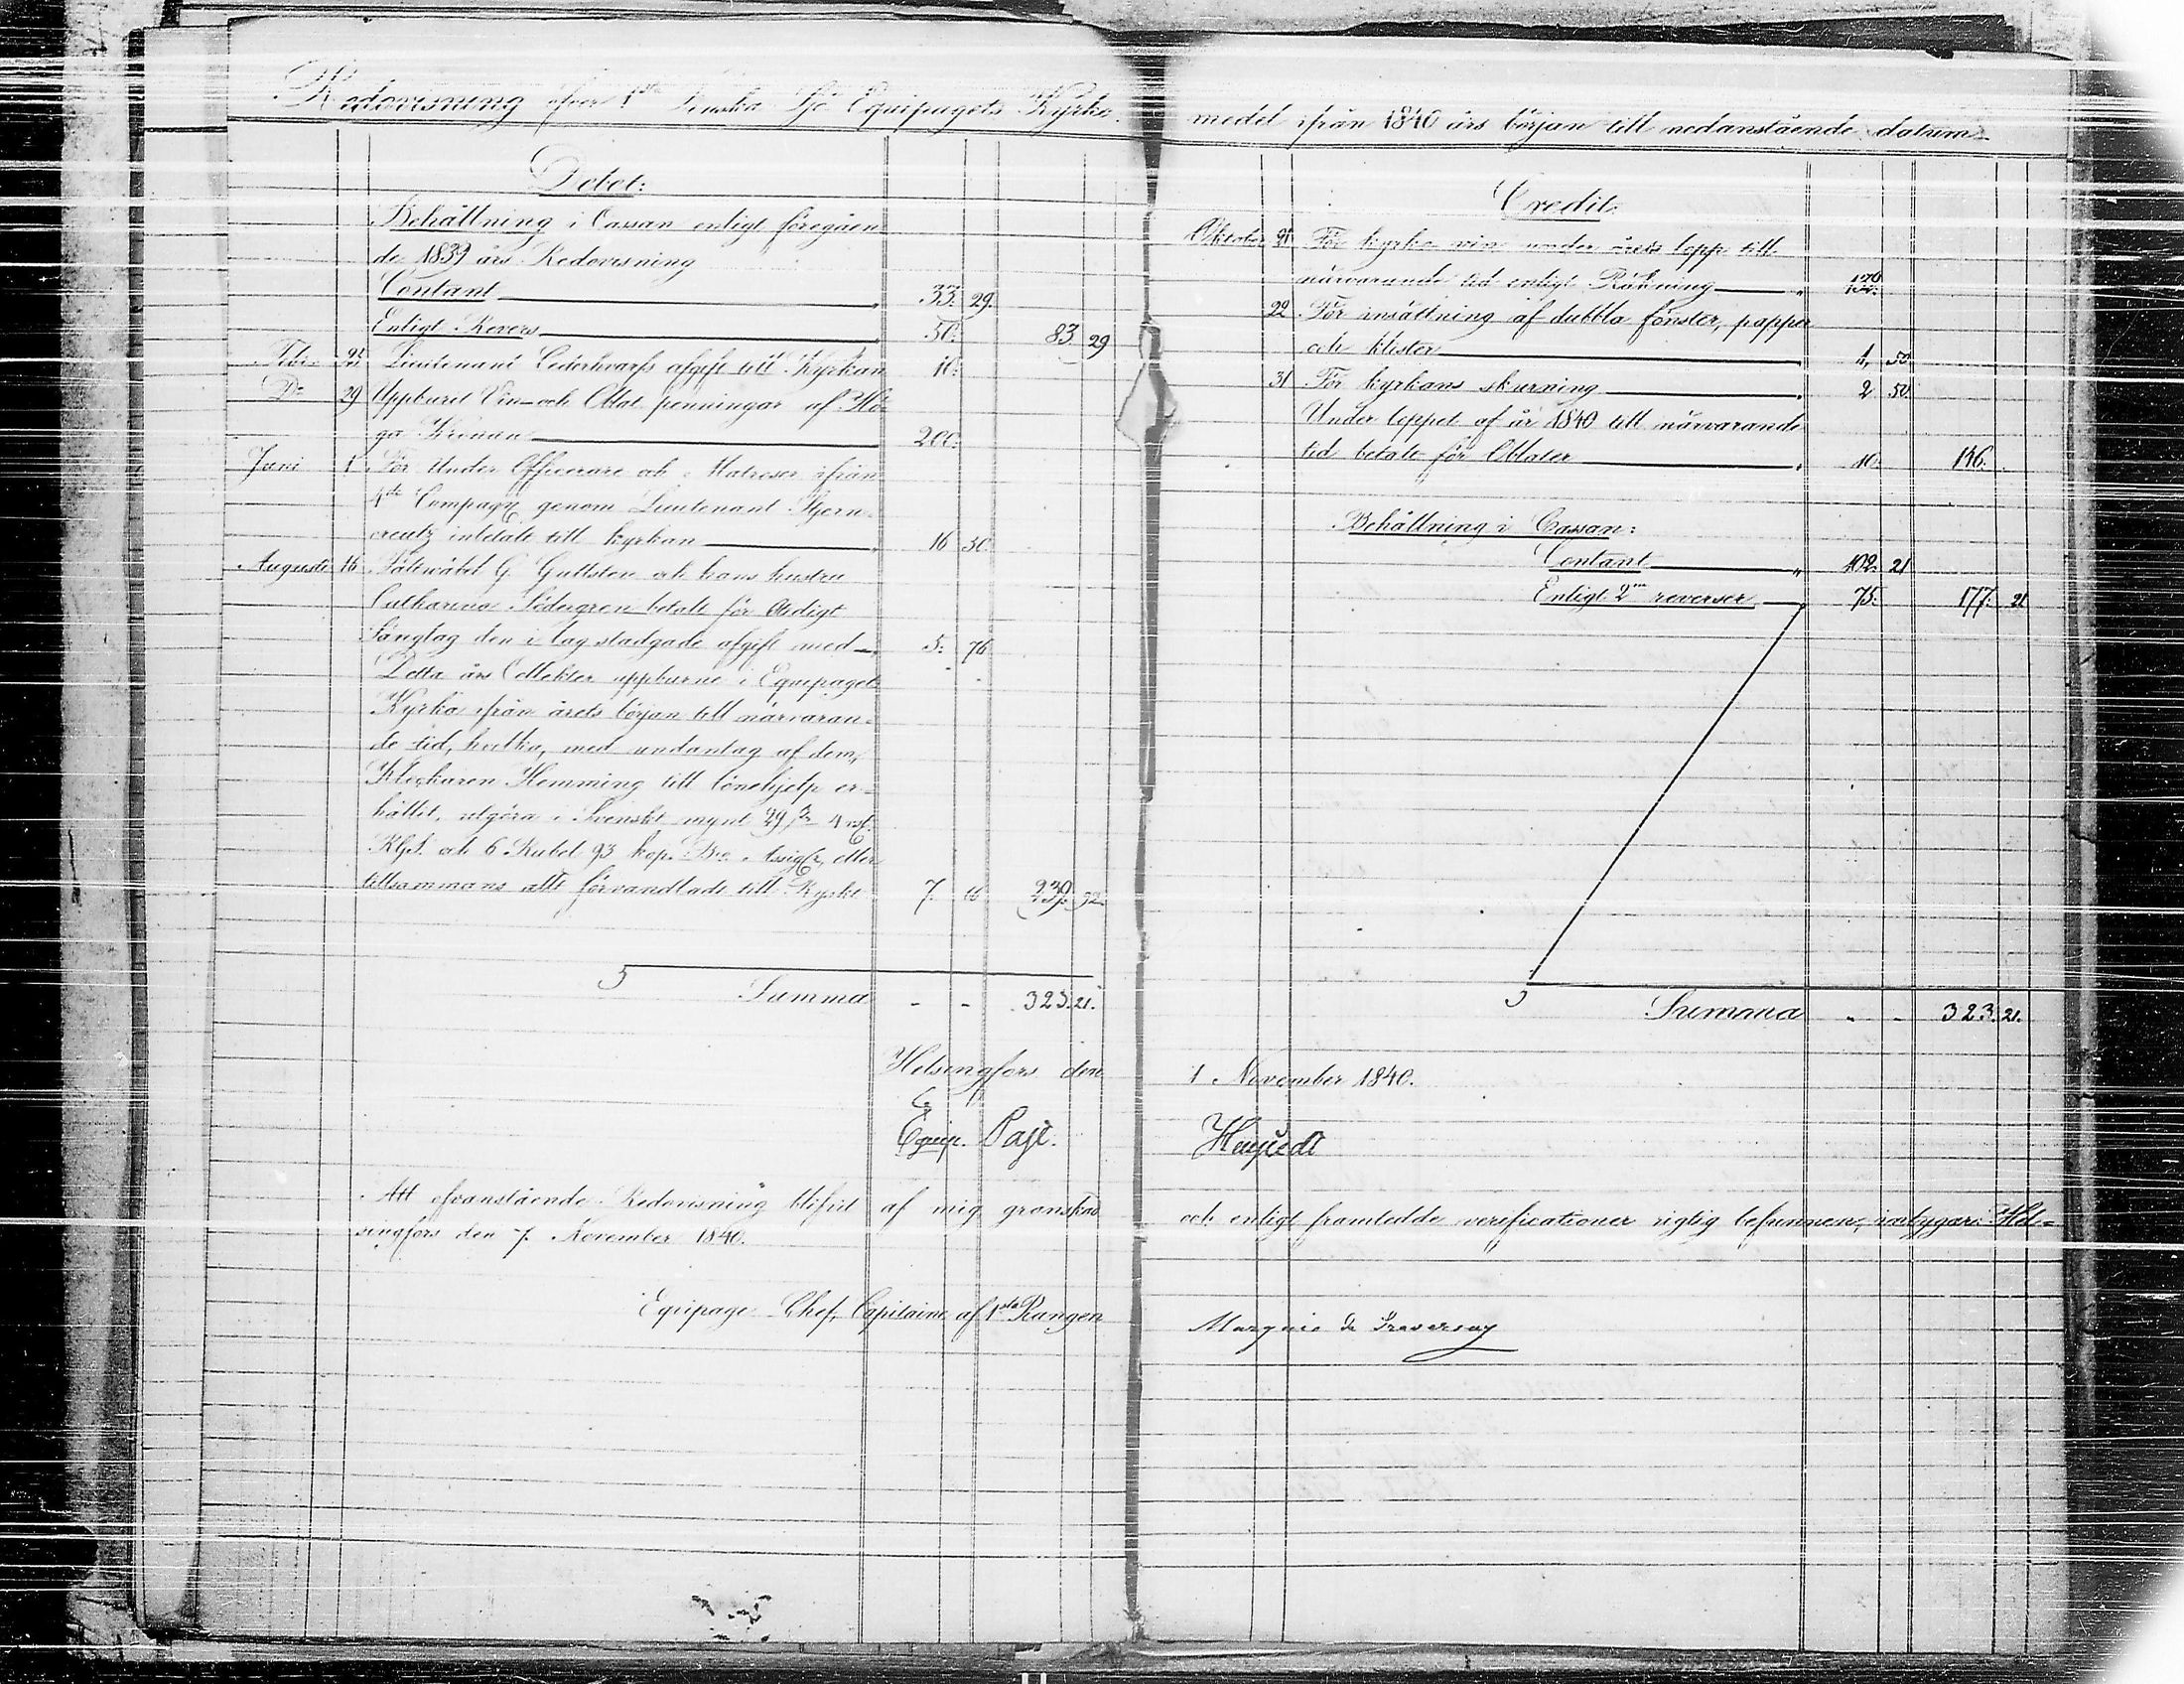 Redovisning öfver 1sta Finska Sjö Equipagets Kyrko-
medel ifrån 1840 års början till nedanstående datum
Debet:
Behållning i Cassan enligt föregåen
de 1839 års Redovisning
Contant 33: 29.
Enligt Revers 50: 83 29
Lieutenant afgift till Kyrkan 10:
Do 29 Uppburit Vin- och Oblat penningar af Hö-
ga Kronan 200:
Juni 1 För Under Officerare och Matroser ifrån
4de Compagn genom Lieutenant Stjern-
creutz inbetalt till kyrkan 16 50
Augusti 16 Fältwäbel G. Gullsten och hans hustru
Catharina Södergren betalt för otidigt
Sänglag den i lag stadgade afgift med 5: 76
Detta års Collekter uppburne i Equipagets
Kyrka ifrån årets början till närvaran-
de tid, hvilka, med undantag af dem,
Klockaren Hemming till lönehjelp er-
hållit, utgöra i Svenskt mynt 29
RGS. och 6 Rubel 93 kop. Bco Assign, eller
tillsammans allt förvandladt till Ryskt 7. 66 239. 92.
Summa - - 323. 21.
Credit:
Oktober 21 För kyrko vin under årets lopp till
närvarande tid enligt Räkning
22 För insättning af dubbla fönster, papper
och klister 1, 50
31 För kyrkans skurning 2 50
Under loppet af år 1840 till närvarande
tid betalt för Oblater 146.
Behållning i Cassan:
Contant 102. 21
Enligt 2ne reverser 75: 177: 21
Summa - - 323. 21.
Helsingfors den 1 November 1840.
Equip.
Att ofvanstående Redovisning blifvit af mig granskad och enligt framtedde verificationer rigtig befunnen, intygar: Hel-
singfors den 7. November 1840.
Equipage-Chef, Capitaine af 1sta Rangen Marquis de Traversay